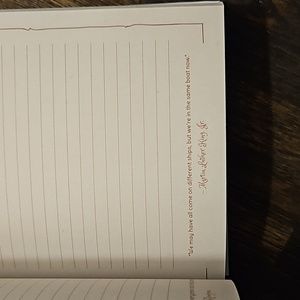 "We may have all come on different ships, but we're in the same boat now."
—Martin Luther King Jr.